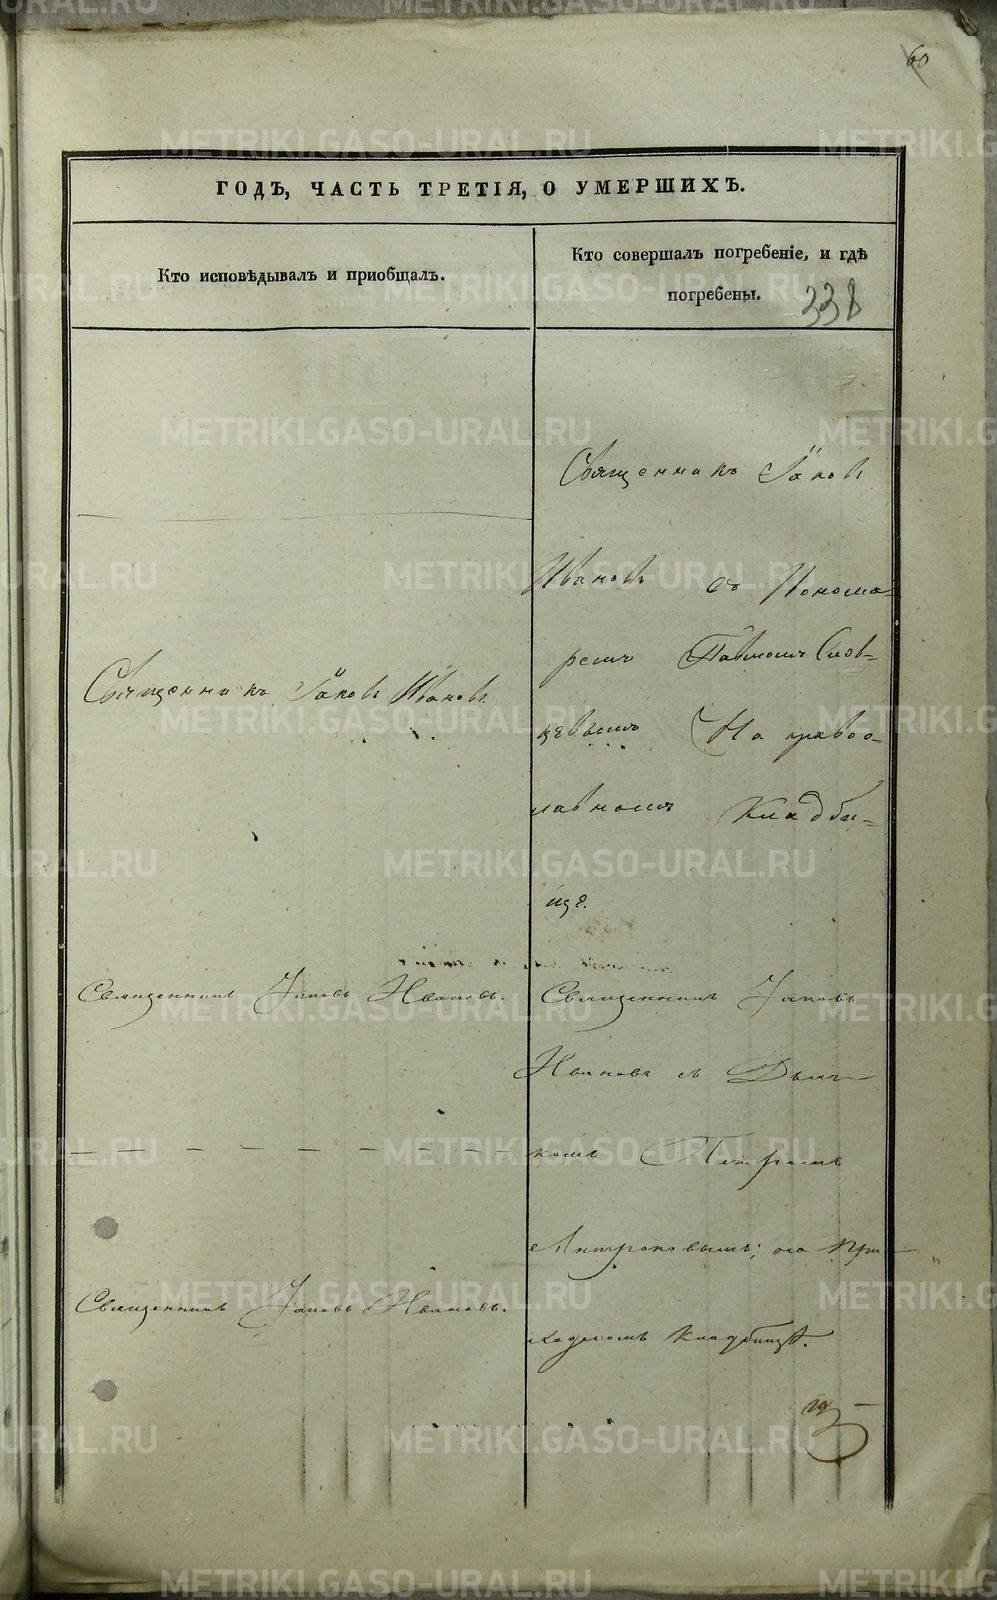 60
ГОДЪ, ЧАСТЬ ТРЕТІЯ, О УМЕРШИХЪ.
Кто исповѣдывалъ и приобщалъ.
Кто совершалъ погребеніе, и гдѣ
погребены.
338
Священникъ Іаковъ
Ивановъ съ Понома-
ремъ Павломъ Слов-
цевымъ На правос-
лавномъ Кладби-
ще.
Священникъ Іаковъ Ивановъ.
Священникъ Іаковъ Ивановъ.
Священникъ Іаковъ
Ивановъ съ Дьяч-
комъ Петромъ
на При-
ходскомъ кладбищѣ.
Священникъ Іаковъ Ивановъ.
METRIKI.GASO-URAL.RU